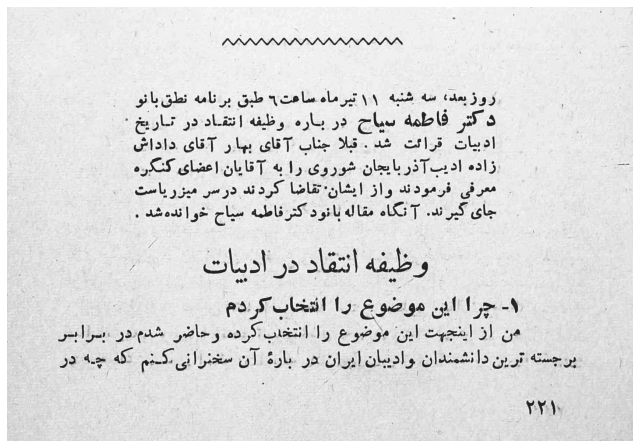 روز بعد، سه شنبه ۱۱ تیر ماه ساعت ۶ طبق برنامه نطق بانو
دکتر فاطمه سیاح در باره وظیفه انتقاد در تاریخ
ادبیات قرائت شد. قبلا جناب آقای بهار آقای داداش
زاده ادیب آذربایجان شوروی را به آقایان اعضای کنگره
معرفی فرمودند و از ایشان تقاضا کردند در سر میز ریاست
جای گیرند. آنگاه مقاله بانو دکتر فاطمه سیاح خوانده شد.
وظیفه انتقاد در ادبیات
۱- چرا این موضوع را انتخاب کردم
من از اینجهت این موضوع را انتخاب کرده و حاضر شدم در برابر
برجسته ترین دانشمندان و ادیبان ایران در بارهٔ آن سخنرانی کنم که چه در
۲۲۱